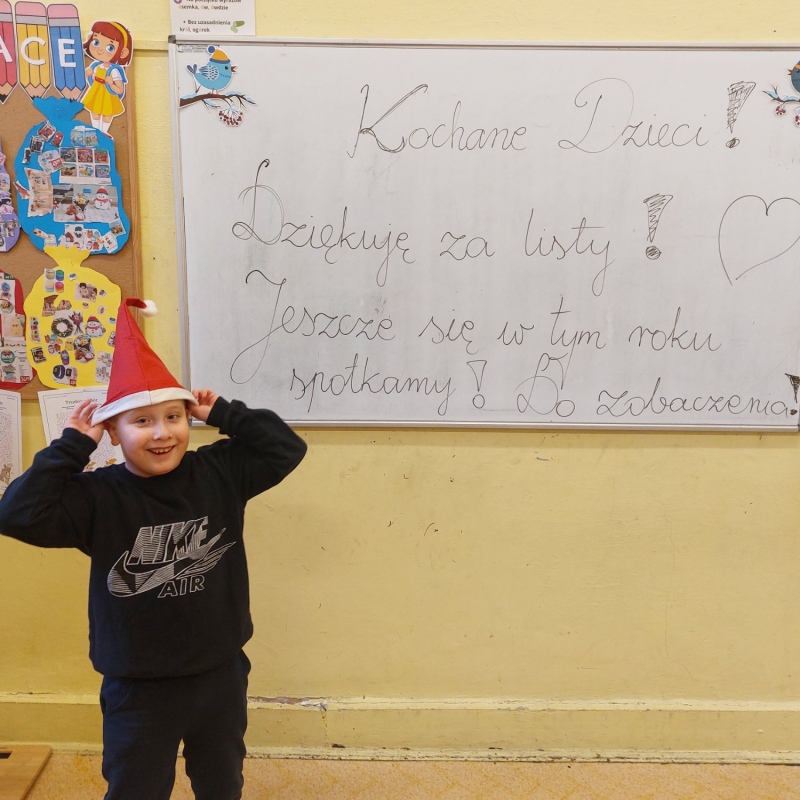 ACE
• Bez uzasadnienia
Kochane Dzieci!
Dziękuję za listy!
Jeszcze się w tym roku
spotkamy! Do zobaczenia!
NIKE
AIR